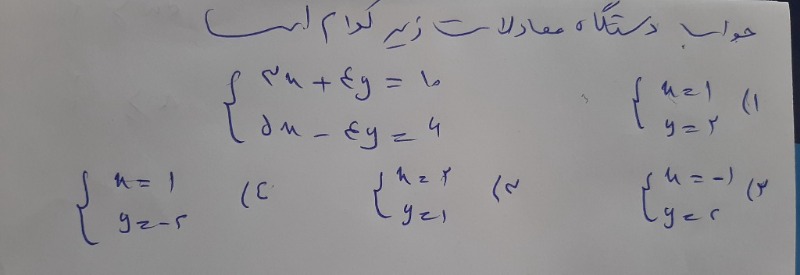 جواب دستگاه معادلات زیر کدام است
{ ۳x + ٤y = ۱۰
۵x - ٤y = ۶
۱) { x = ۱
y = ۲
۲) { x = -۱
y = ۲
۳) { x = ۲
y = ۱
٤) { x = ۱
y = -۲